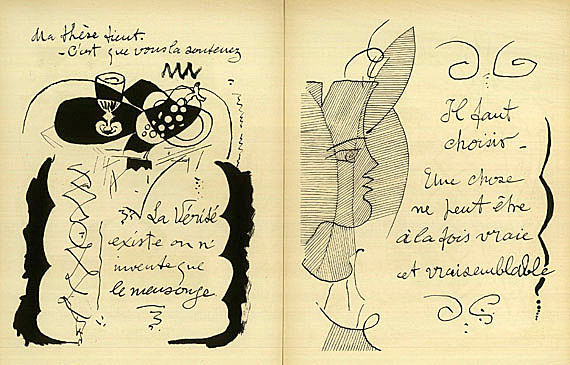 Ma thèse tient.
– C'est que vous la soutenez
La Vérité
existe on n'
invente que
le mensonge
Il faut
choisir –
Une chose
ne peut être
à la fois vraie
et vraisemblable